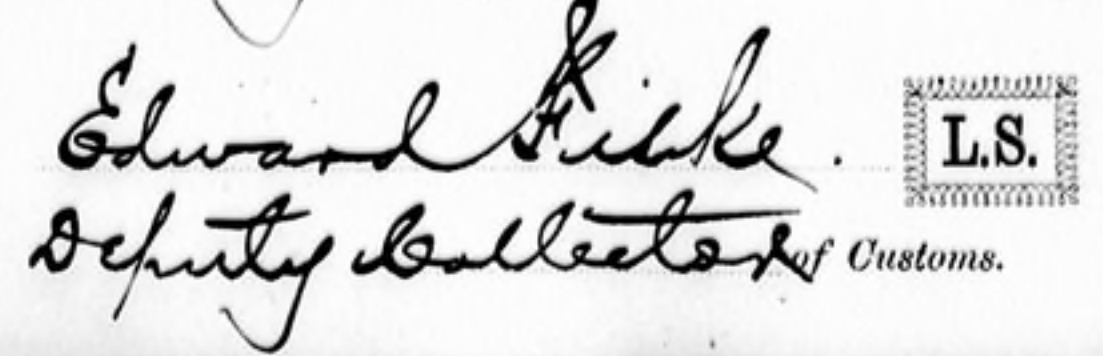 Edward
L.S.
Deputy Collector of Customs.